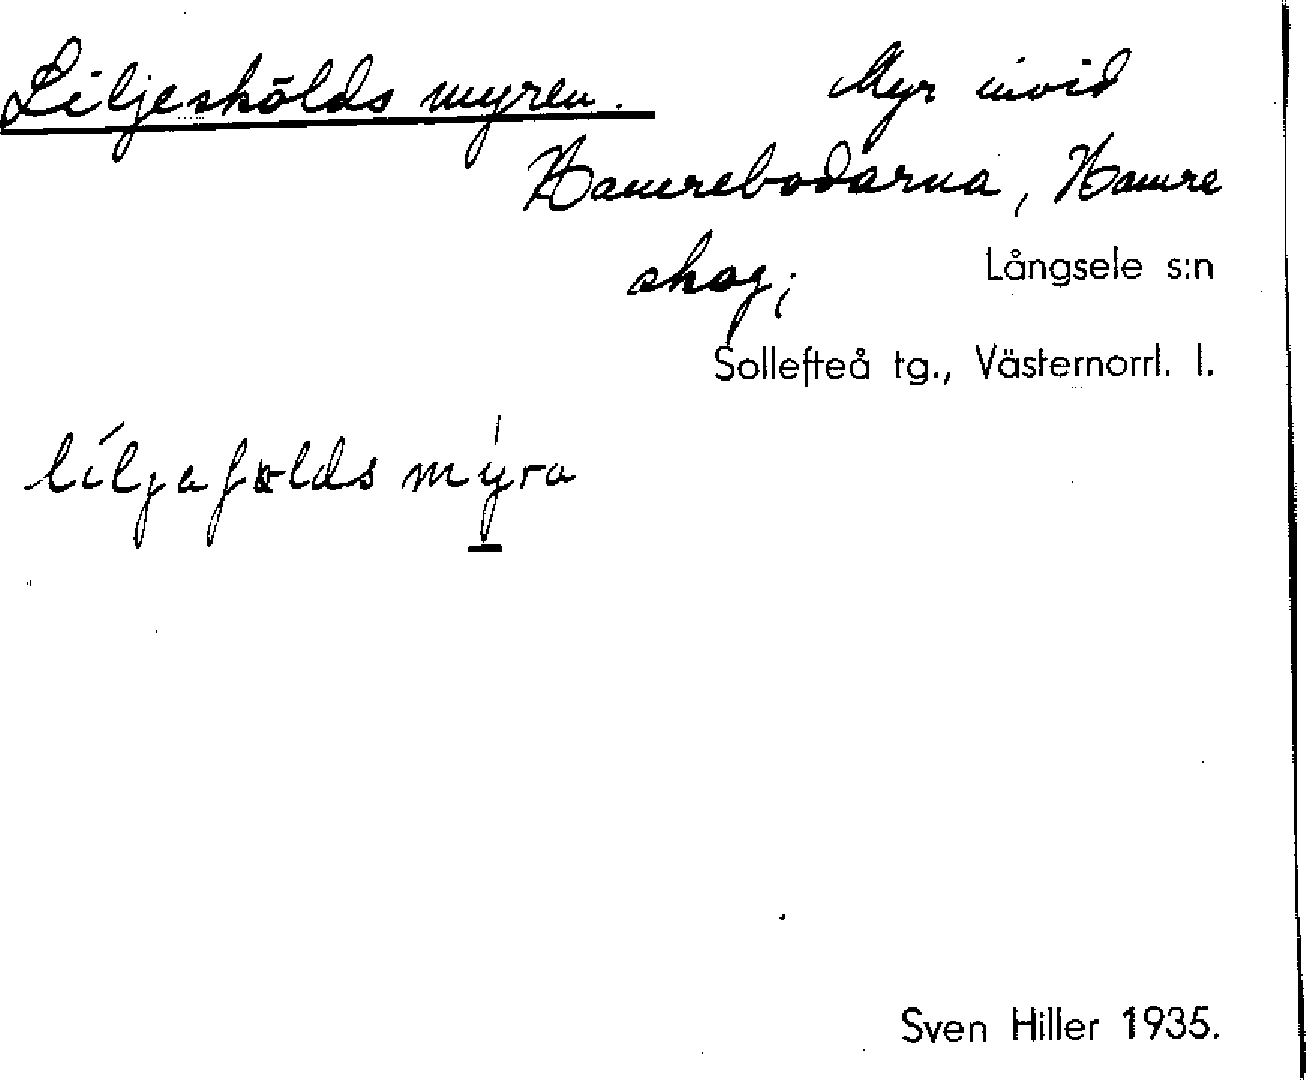 Liljeskölds myren. Myr invid
Hamrebodarna, Hamre
skog;
Långsele s:n
Sollefteå tg., Västernorrl. l.
mýra
Sven Hiller 1935.